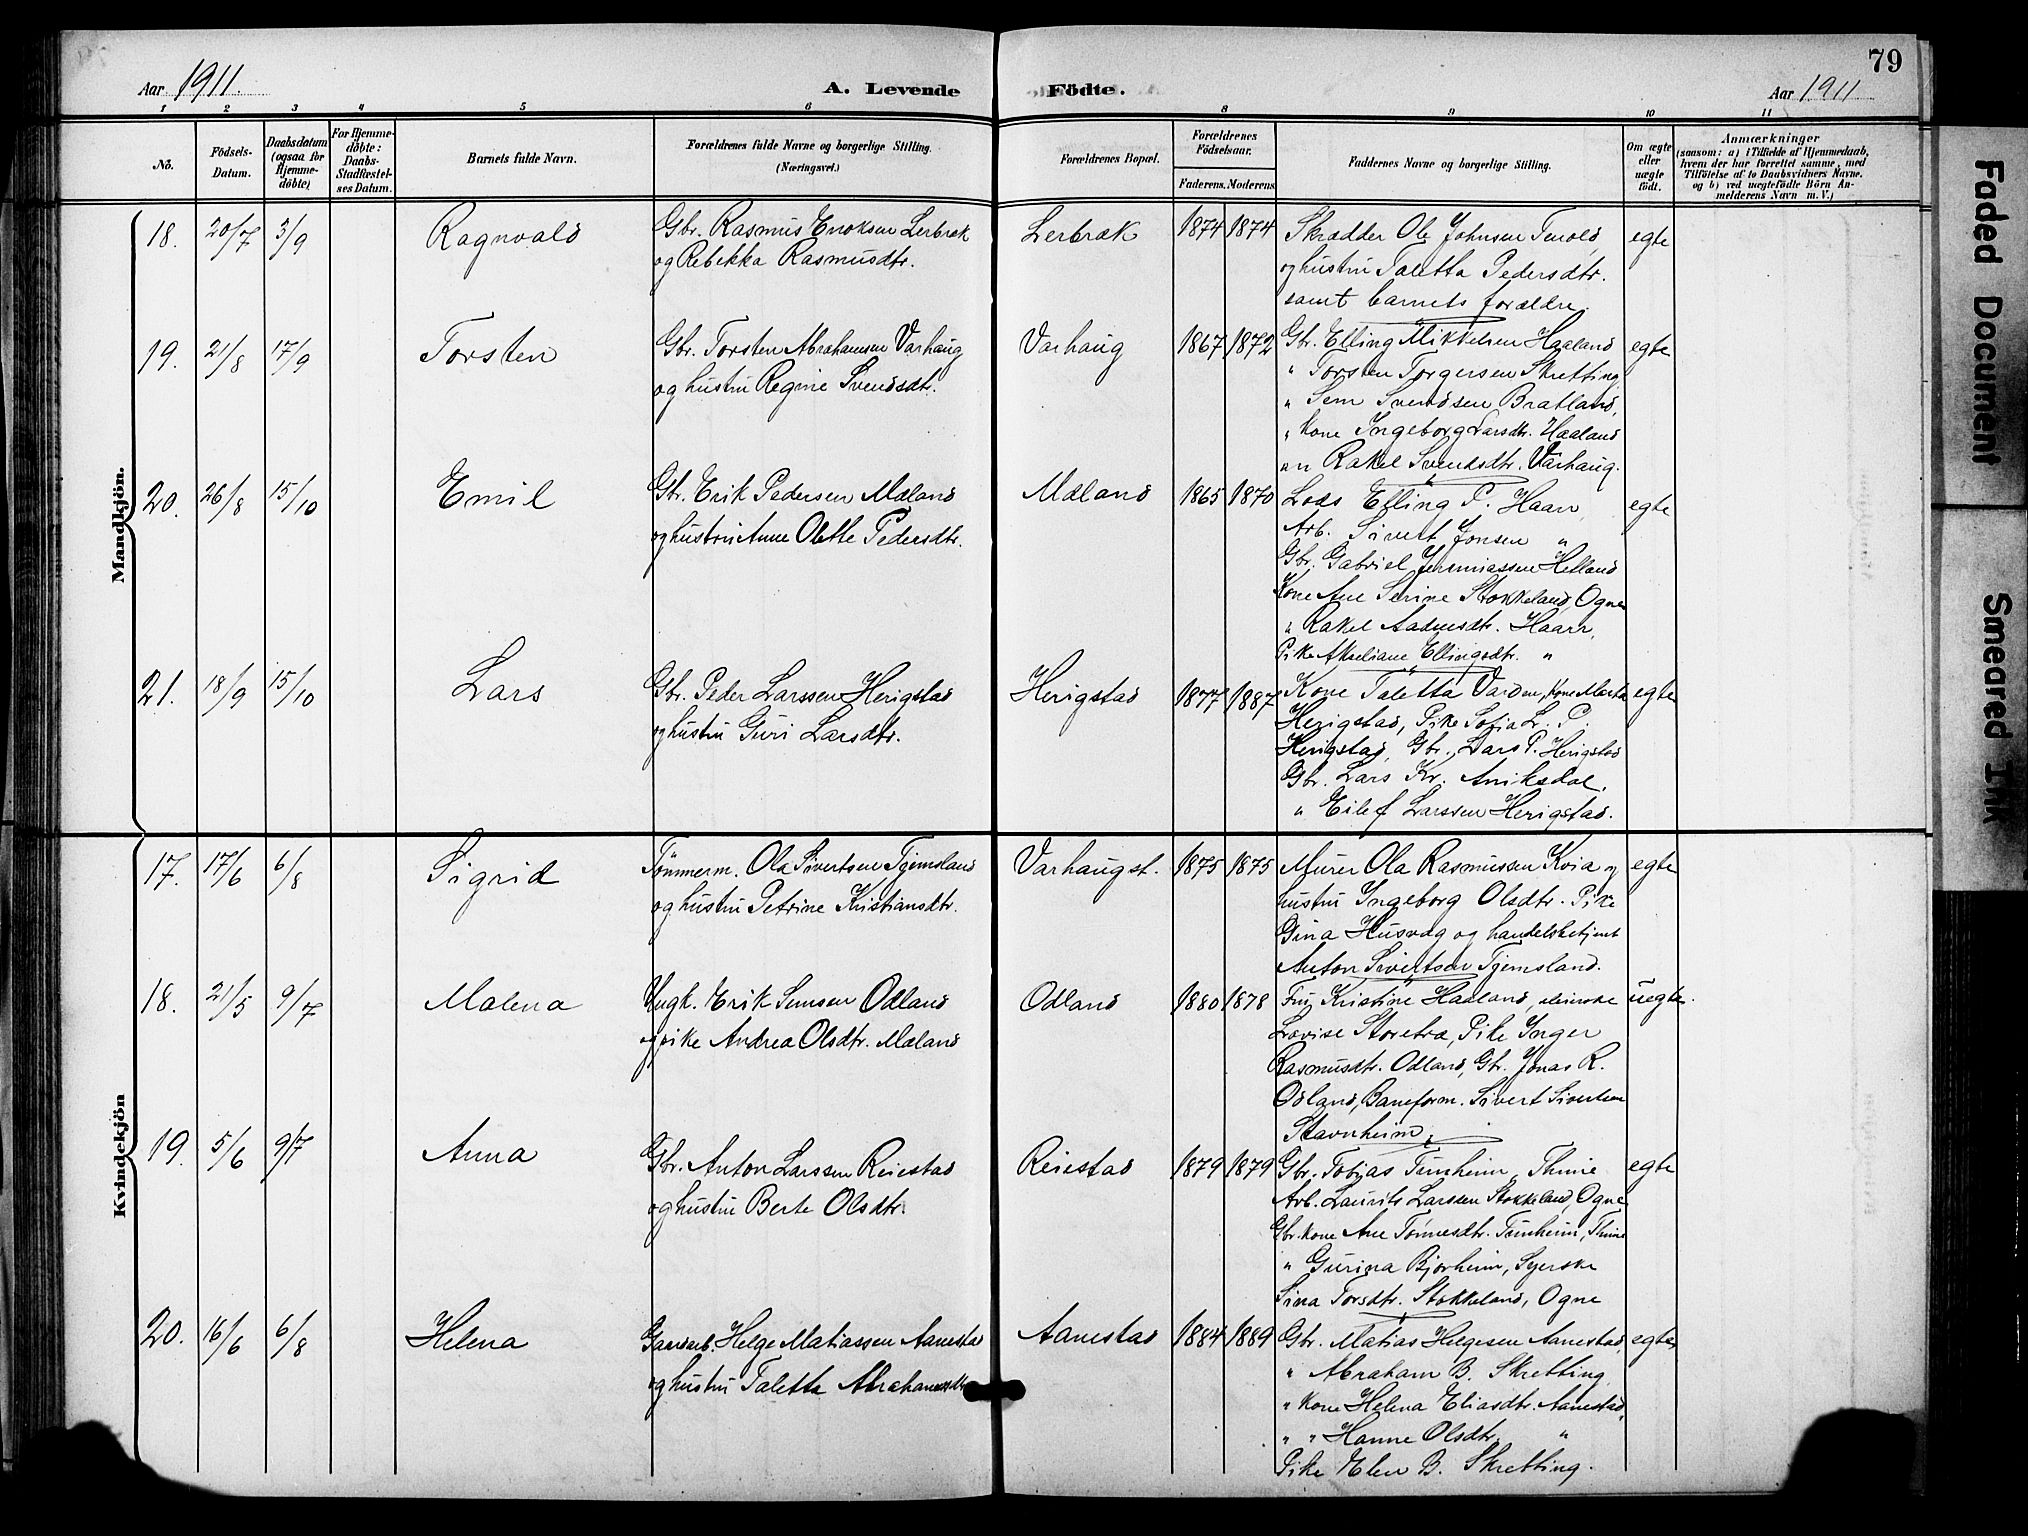 79
Aar 1911.
A. Levende
Födte.
Aar 1911
1 2 3 4 5 6 8 9 10 11
Nō.
Födsels-
Datum.
Daabsdatum
(ogsaa for
Hjemme-
döbte)
For Hjemme-
döbte:
Daabs-
Stadfæstel-
ses Datum.
Barnets fulde Navn.
Forældrenes fulde Navne og borgerlige Stilling.
(Næringsvei.)
Forældrenes Bopæl.
Forældrenes
Födselsaar.
Faderens. Moderens
Faddernes Navne og borgerlige Stilling.
Om ægte
eller
uægte
födt.
Anmærkninger
(saasom: a) i Tilfælde af Hjemmedaab,
hvem der har forrettet samme, med
Tilföielse af to Daabsvidners Navne.
og b) ved uægtefödte Börn An-
melderens Navn m. V.)
Mandkjön.
18. 20/7 3/9 Ragnvald
Gbr. Rasmus Enoksen Lerbræk
og Rebekka Rasmusdtr.
Lerbræk 1874 1874
Skrædder Ole Johnsen
og hustru Taletta Pedersdtr.
samt barnets forældre.
egte
19. 21/8 17/9 Torsten
Gbr. Torsten Abrahamsen Varhaug
og hustru Regine Svendsdtr.
Varhaug 1867 1872
Gbr. Elling Mikkelsen Haaland
" Torsten Torgersen Skretting
" Sem Svendsen Bratland,
" kone Ingeborg Larsdtr. Haaland
" " Rakel Svendsdtr. Varhaug.
egte
20. 26/8 15/10 Emil
Gbr. Erik Pedersen Mæland
og hustru Anne Olette Pedersdtr.
Mæland 1865 1870
Lods Elling P. Haar
Arb. Sivert Jonsen "
Gbr. Gabriel Jeremiassen Hetland
Kone Ane Serine Stokkeland, Ogne
" Rakel Haarr,
Pike Akseliane Ellingsdtr. "
egte
21. 18/9 15/10 Lars
Gbr. Peder Larssen Herigstad
og hustru Guri Larsdtr.
Herigstad 1877 1887
Kone Taletta Varden, Kone Marta
Herigstad, Pike Sofia L. P.
Herigstad, Gbr. Lars P. Herigstad
Gbr. Lars Kr. Aniksdal.
" Eilef Larssen Herigstad.
egte
Kvindekjön
17. 17/6 6/8 Sigrid
Tømmerm. Ola Sivertsen Tjemsland
og hustru Petrine Kristiansdtr.
Varhaugst. 1875 1875
Murer Ola Rasmussen Kvia og
hustru Ingeborg Olsdtr. Pike
Gina Husvæg og handelsbetjent
Anton Sivertsen Tjemsland.
egte
18. 21/5 9/7 Malena
Ungk. Erik Semsen Odland
og pike Andrea Olsdtr. Mæland
Odland 1880 1878
Fru Kristine Haaland,
Lovise Storetra, Pike Inger
Rasmusdtr. Odland, Gbr. Jonas R.
Odland, Baneform. Sivert Sivertsen
Stavnheim.
uegte.
19. 5/6 9/7 Anna
Gbr. Anton Larssen Reiestad
og hustru Berte Olsdtr.
Reiestad 1879 1879
Gbr. Tobias Tunheim, Thime
Arb. Laurits Larssen Stokkeland, Ogne
Gbr. kone Ane Tønnesdtr. Tunheim, Thime
" Gurina Bjorheim, Syerske
Sina Torsdtr. Stokkeland, Ogne
egte
20. 16/6 6/8 Helena
Gaardarb. Helge Matiassen Aanestad
og hustru Taletta Abrahamsdtr
Aanestad 1884 1889
Gbr. Matias Helgesen Aanestad,
" Abraham B. Skretting,
" kone Helena Eliasdtr. Aanestad,
" " Hanne Olsdtr. "
Pike Elen B. Skretting.
egte
Faded Document
Smeared Ink